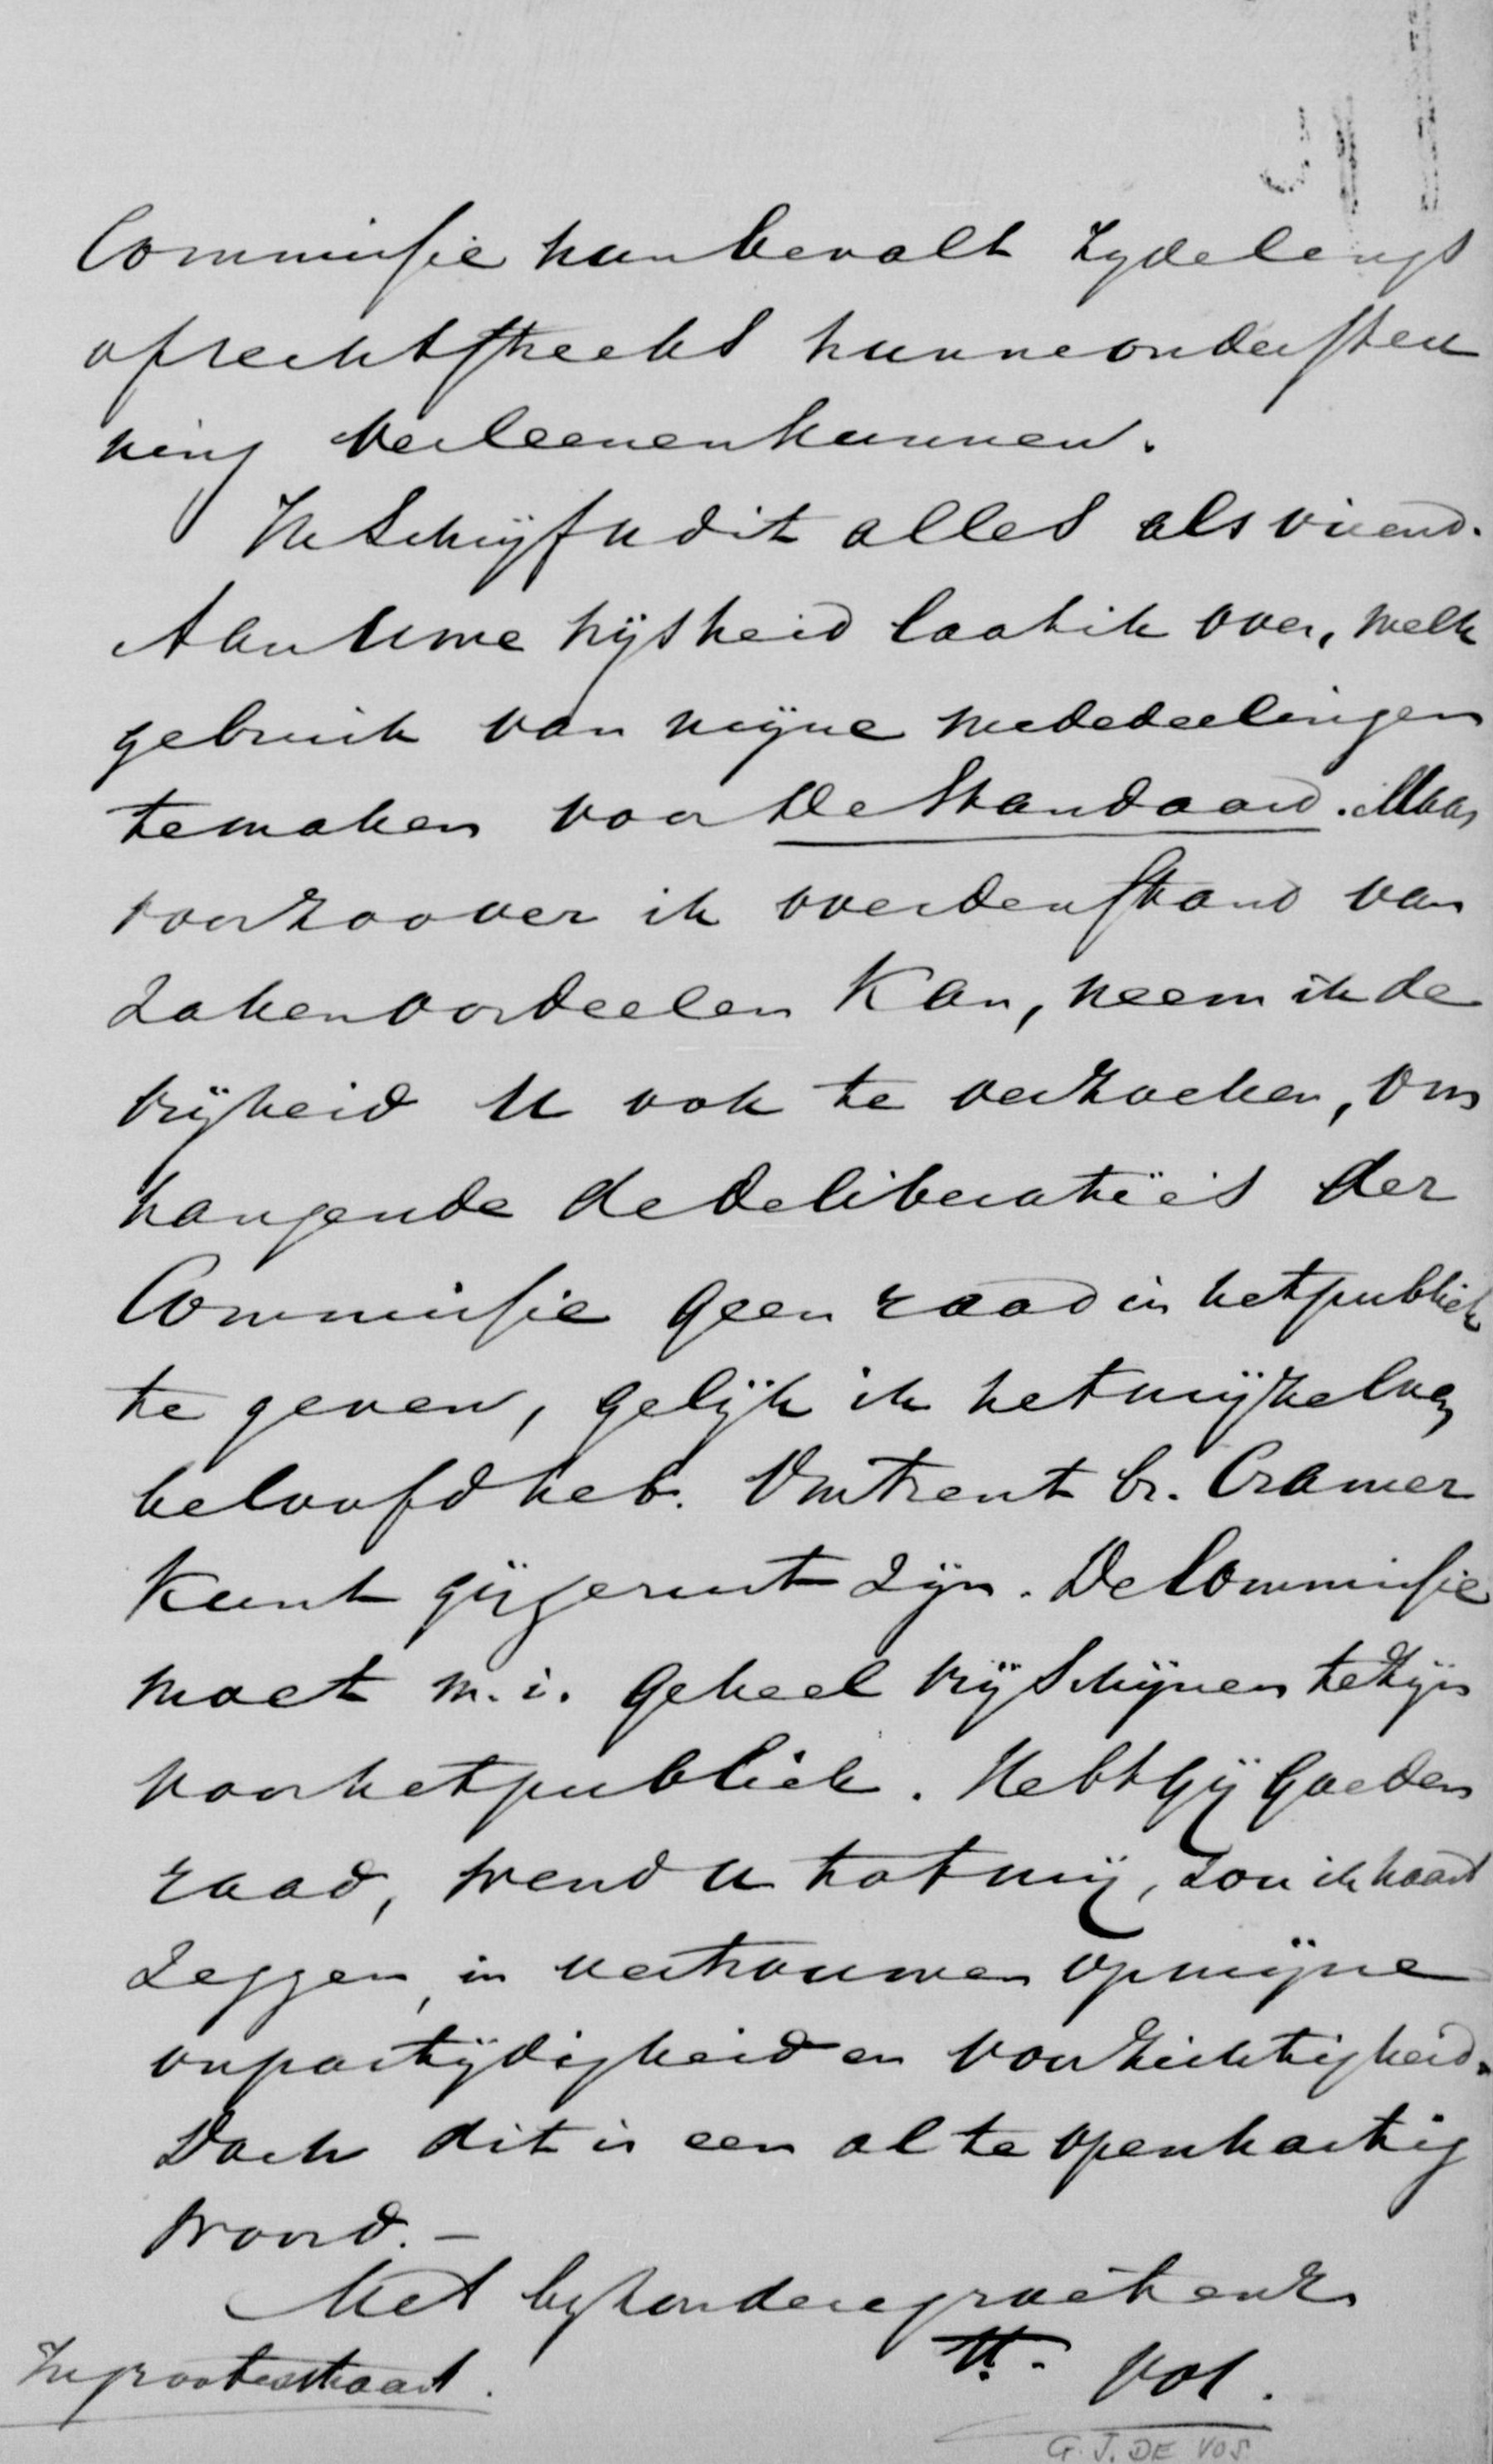 Commissie hun bevalt zydelings
of rechtstreeks hunne ondersteu
ning verleenen kunnen.
Ik schrijf u dit alles als vriend.
Aan Uwe wijsheid laat ik over, welk
gebruik van mijne mededeelingen
te maken voor De Standaard. Maar
voor zoover ik over den stand van
zaken oordeelen kan, neem ik de
vrijheid U ook te verzoeken, om
hangende de deliberatiën der
Commissie geen raad in het publiek
te geven, gelijk ik het mijzelven
beloofd heb. Omtrent br. Cramer
kunt gij gerust zijn. De Commissie
moet m.i. geheel vrij schijnen te zijn
voor het publiek. Hebt Gij goeden
raad, wend u tot mij, zou ik haast
zeggen, in vertrouwen op mijne
onpartijdigheid en voorzichtigheid.
Doch dit is een al te openhartig
woord. –
Met byzondere groet enz
tt. Vos.
In groote haast.
G. J. DE VOS